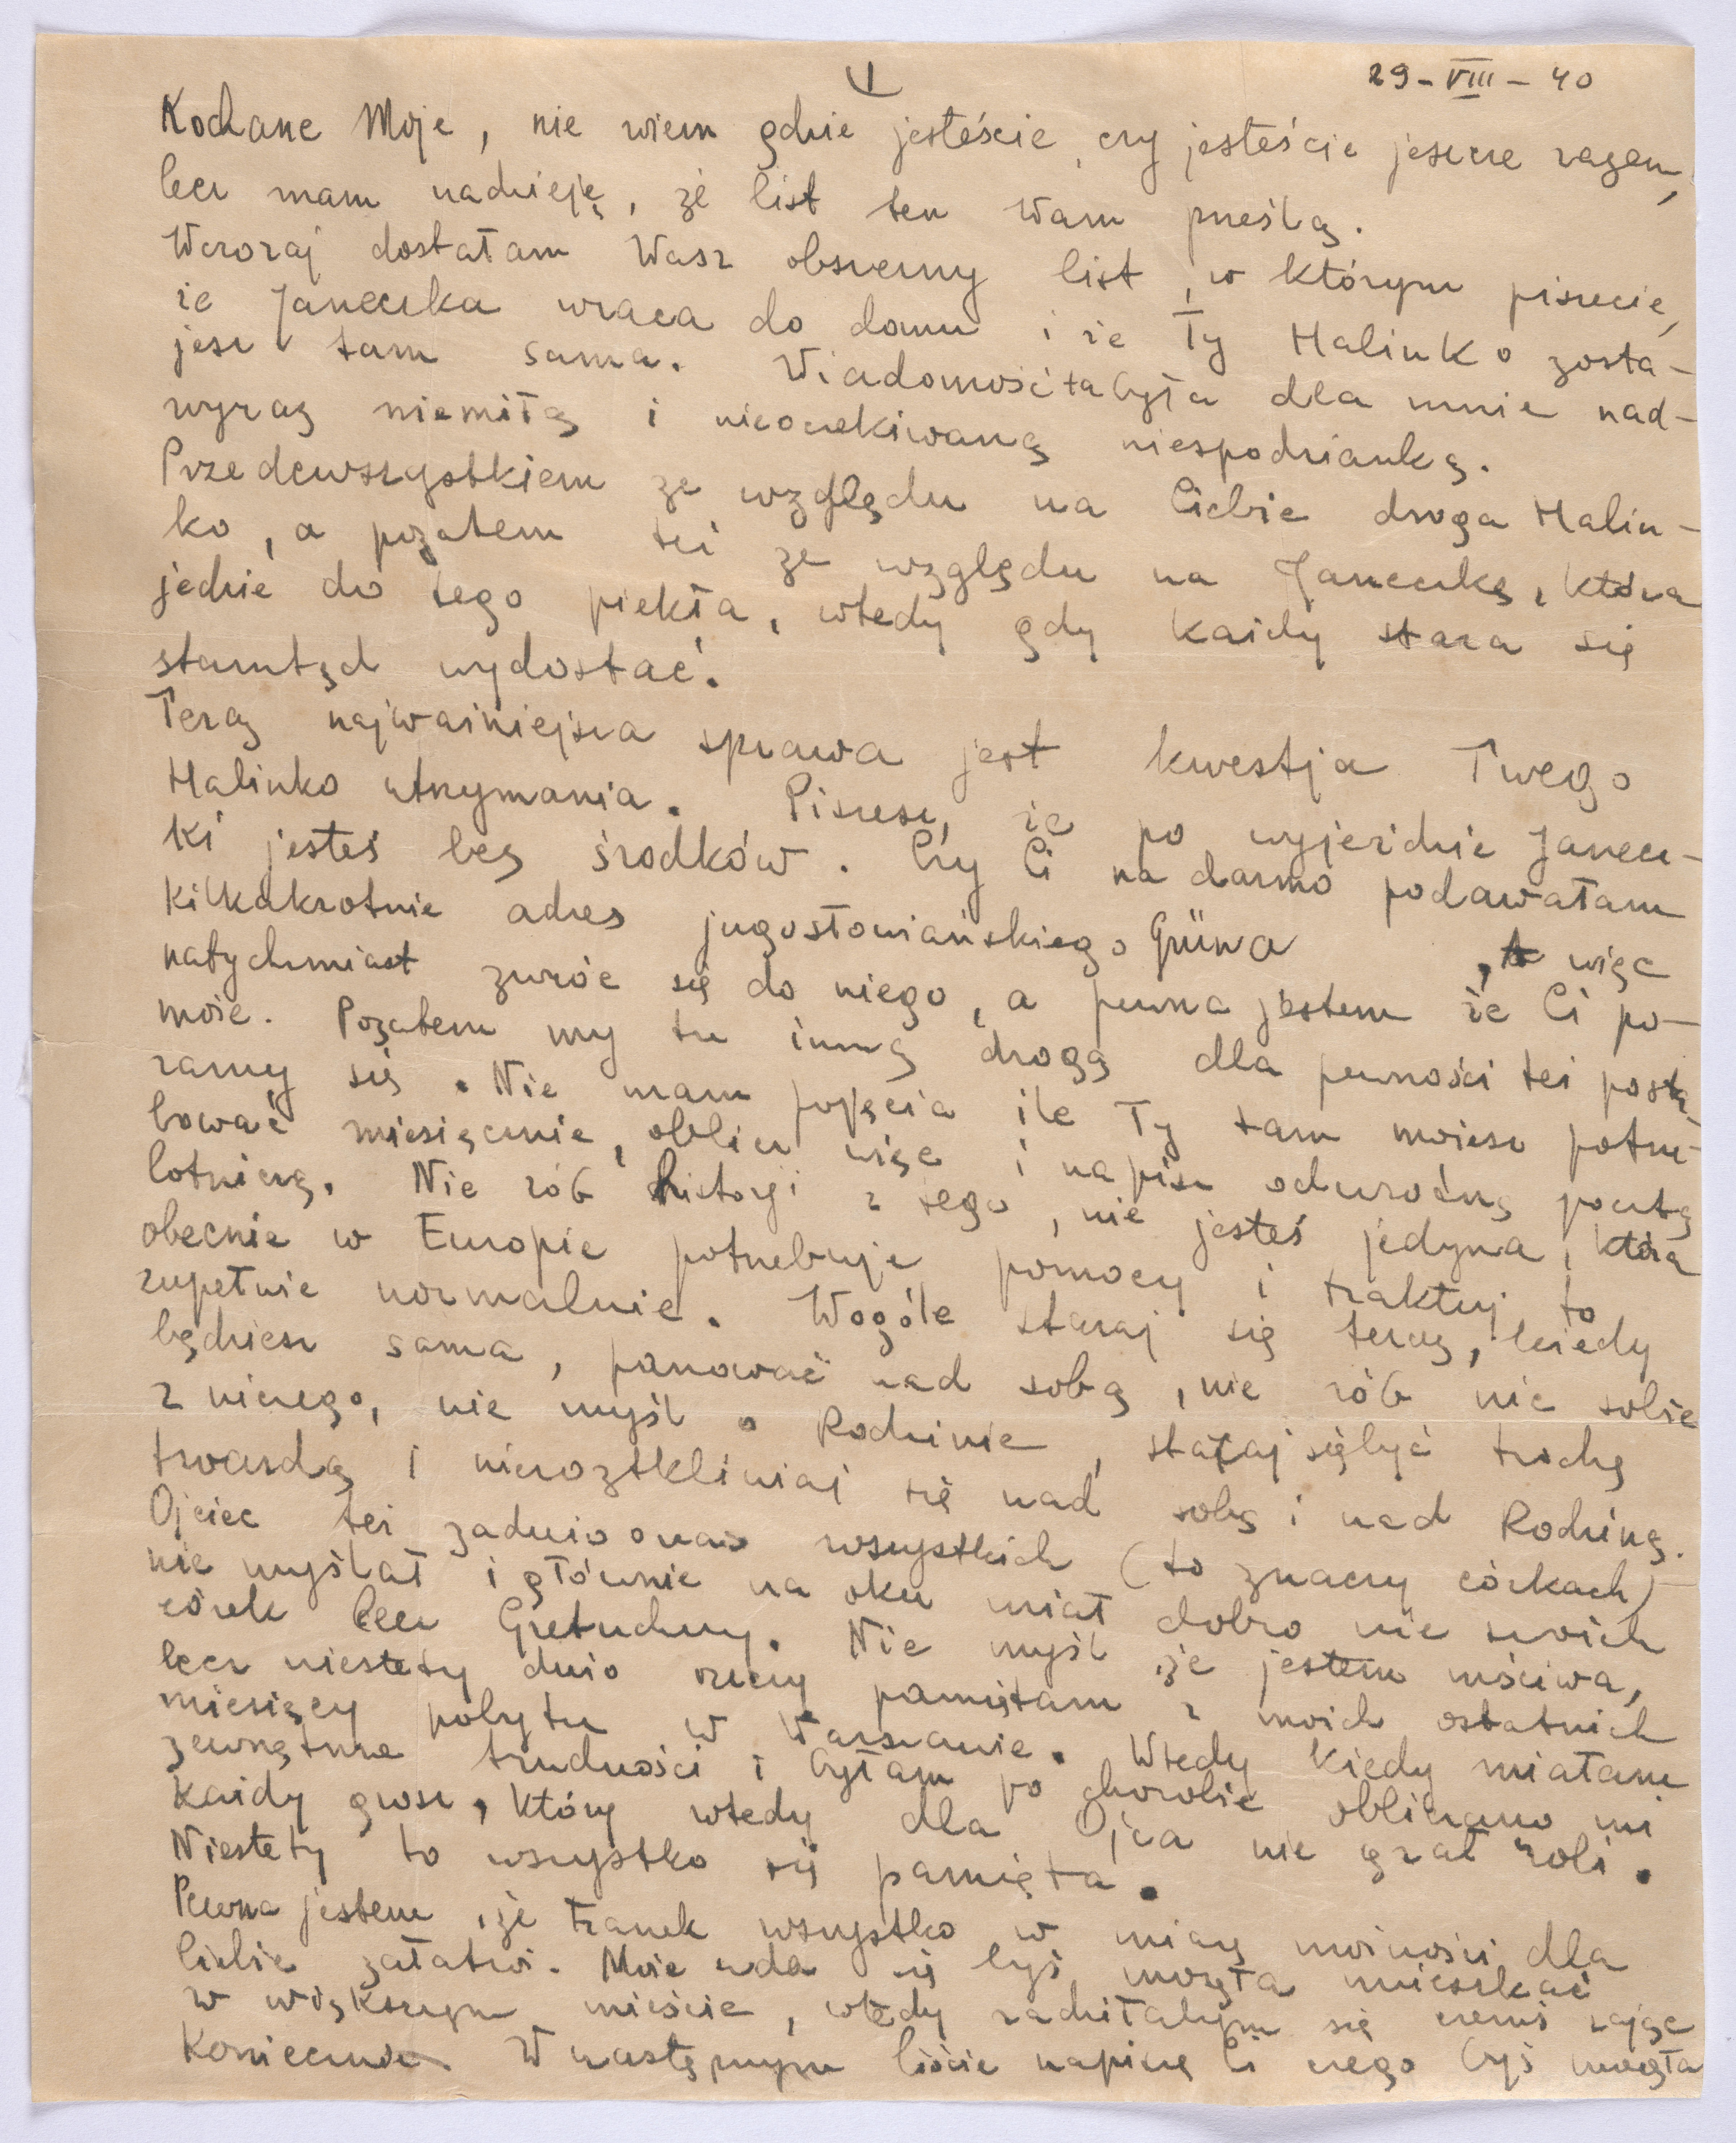 1
29-VIII-40
Kochane Moje, nie wiem gdzie jesteście, czy jesteście jeszcze razem,
lecz mam nadzieję, że list ten Wam prześlą.
Wczoraj dostałam Wasz obszerny list, w którym piszecie,
że Janeczka wraca do domu i że Ty Halinko zosta-
jesz tam sama. Wiadomość ta była dla mnie nad-
wyraz niemiłą i nieoczekiwaną niespodzianką.
Przedewszystkiem ze względu na Ciebie droga Halin-
ko, a pozatem też ze względu na Janeczkę, która
jedzie do tego piekła, wtedy gdy każdy stara się
stamtąd wydostać.
Teraz najważniejsza sprawa jest kwestja Twego
Halinko utrzymania. Piszesz, że po wyjeździe Janecz-
ki jesteś bez środków. Czy Ci na darmo podawałam
kilkakrotnie adres jugosłowiańskiego Grüna, a więc
natychmiast zwróć się do niego, a pewna jestem że Ci po-
może. Pozatem my tu inną drogą dla pewności też posta-
ramy się. Nie mam pojęcia ile Ty tam możesz potrze-
bować miesięcznie, oblicz więc i napisz odwrotną pocztą
lotniczą. Nie rób historji z tego, nie jesteś jedyna, która
obecnie w Europie potrzebuje pomocy i traktuj to
zupełnie normalnie. Wogóle staraj się teraz, kiedy
będziesz sama, panować nad sobą, nie rób nic sobie
z niczego, nie myśl o Rodzinie, staraj się być trochę
twardą i nieroztkliwiaj się nad sobą i nad Rodziną.
Ojciec też zadużo o nas wszystkich (to znaczy córkach)
nie myślał i głównie na oku miał dobro nie swoich
córek lecz Gretuchny. Nie myśl, że jestem mściwa,
lecz niestety dużo rzeczy pamiętam z moich ostatnich
miesięcy pobytu w Warszawie. Wtedy kiedy miałam
zewnętrzne trudności i byłam po chorobie obliczano mi
każdy grosz, który wtedy dla Ojca nie grał roli.
Niestety to wszystko się pamięta.
Pewna jestem, że Franek wszystko w miarę możności dla
Ciebie załatwi. Może uda się byś mogła mieszkać
w większym mieście, wtedy radziłabym się czemś zająć
koniecznie. W następnym liście napiszę Ci czego byś mogła